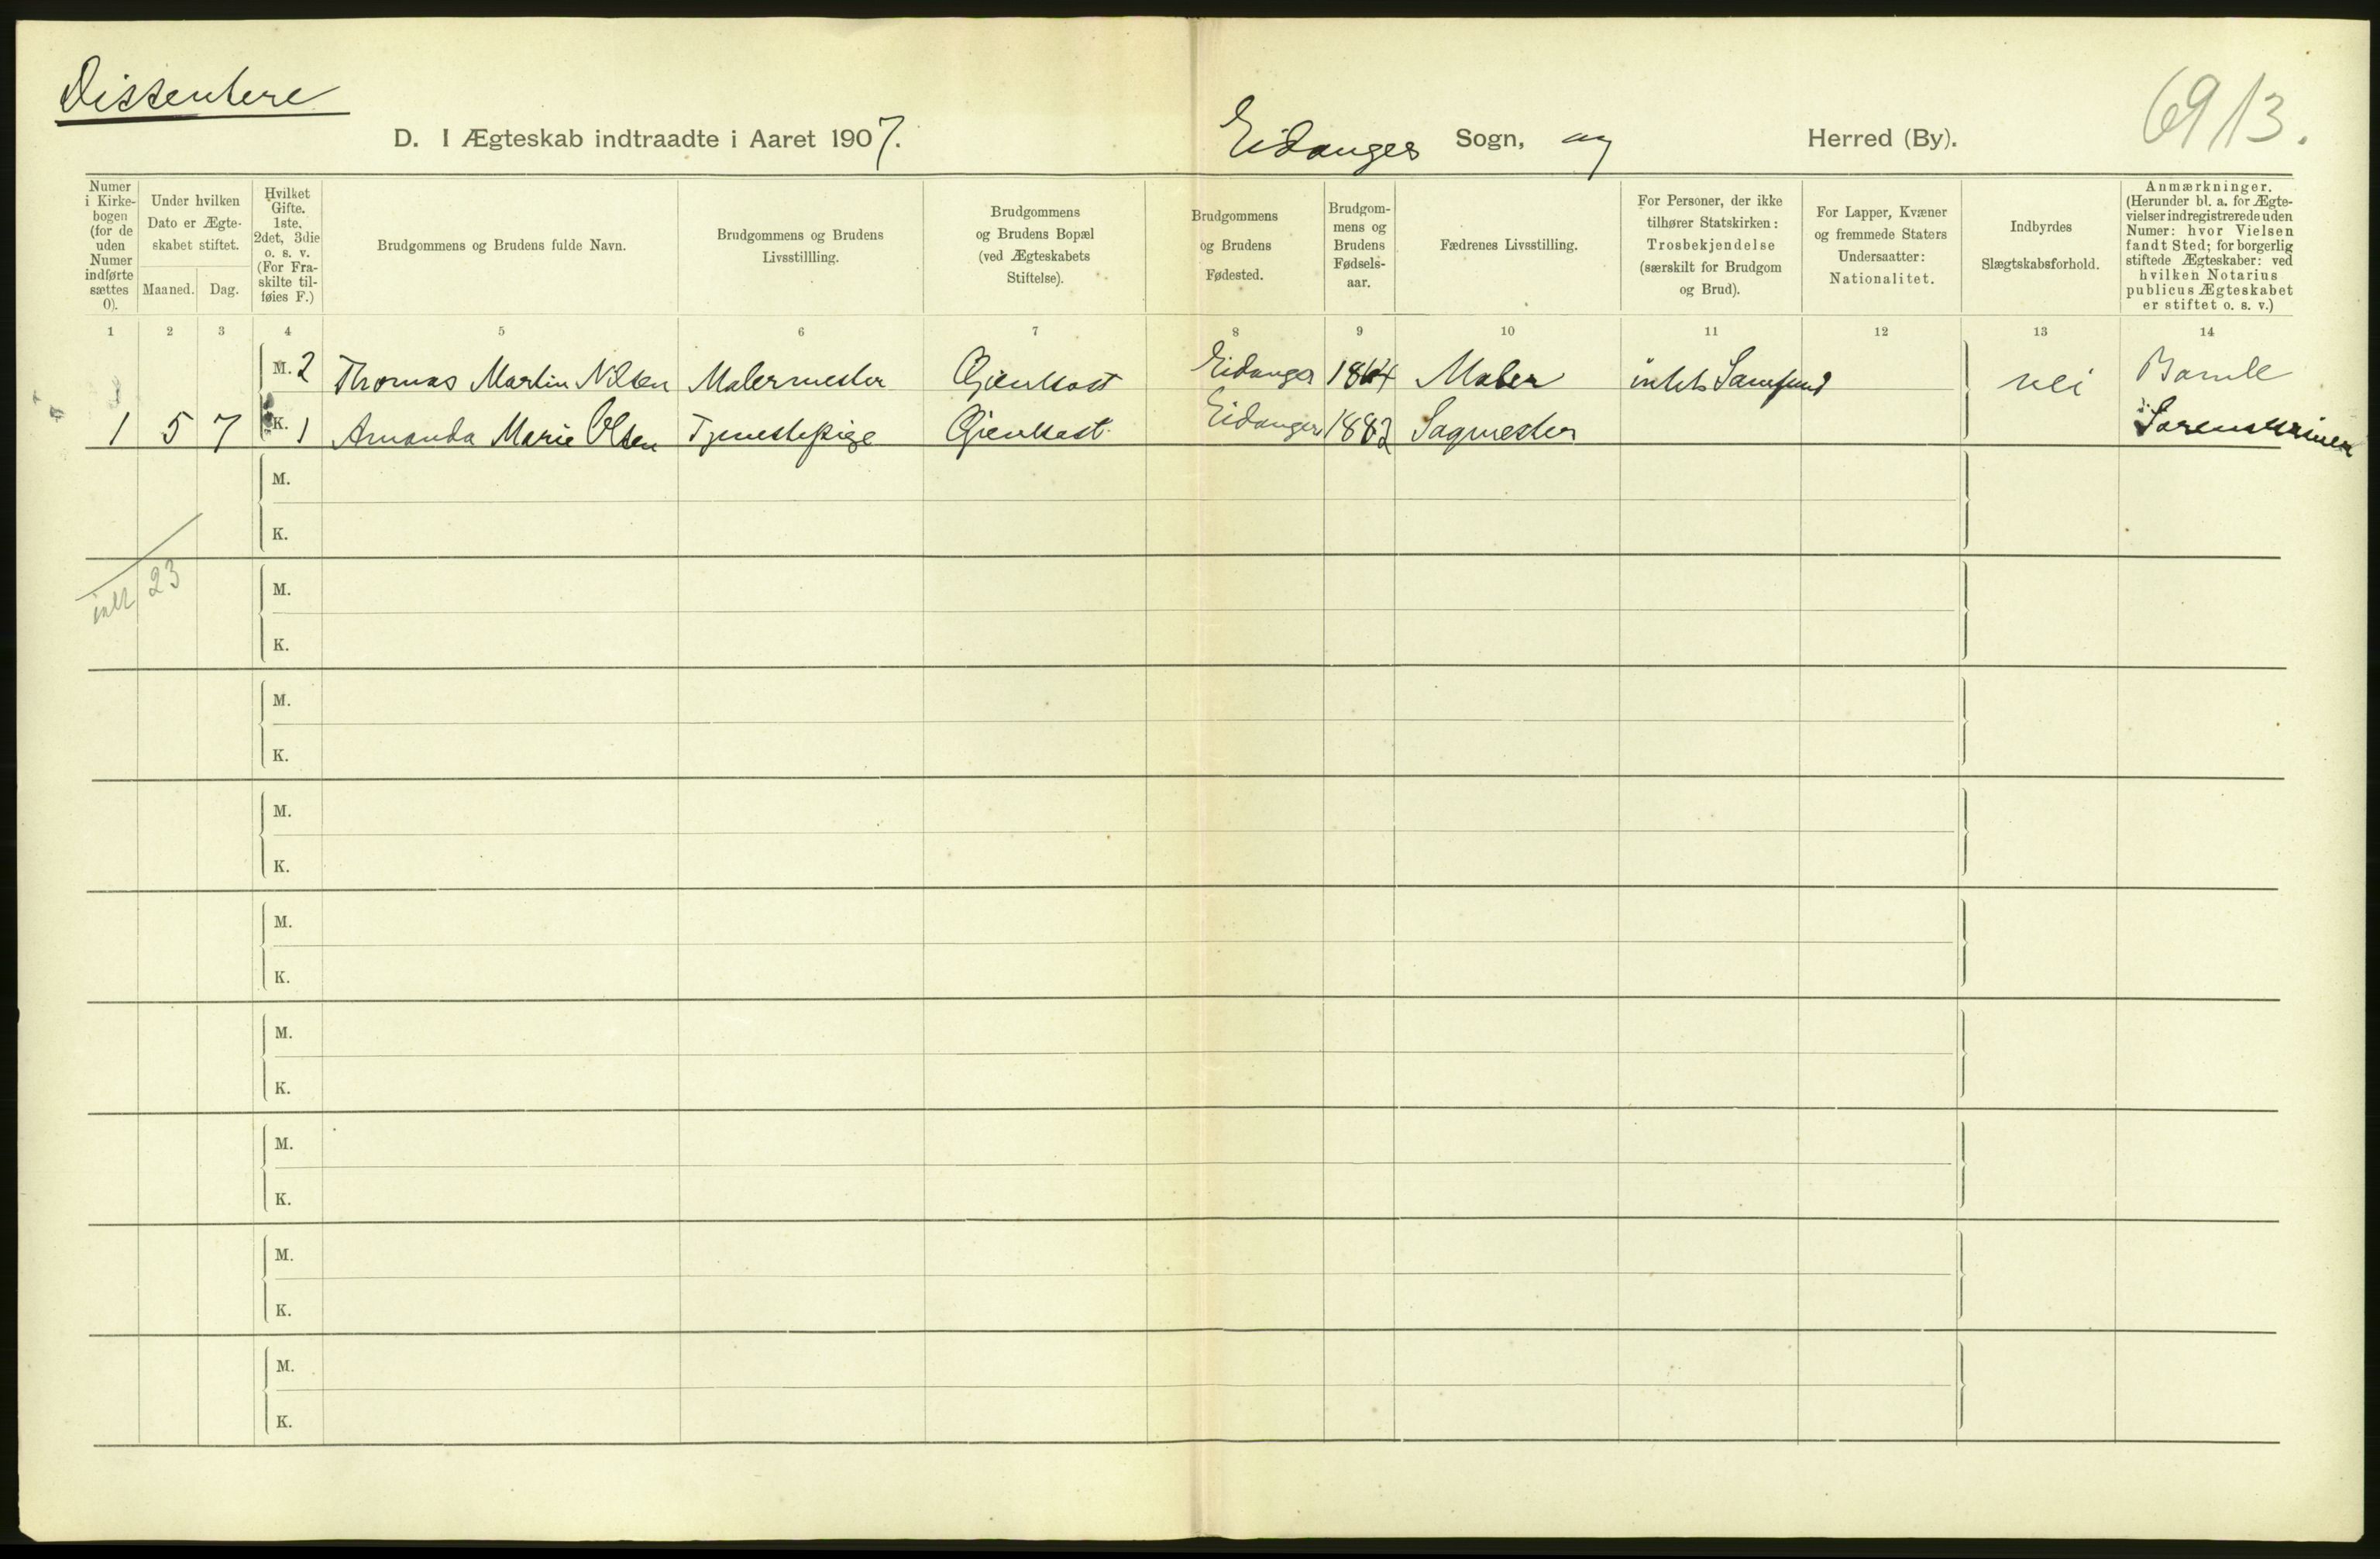 Dissentere
D. I Ægteskab indtraadte i Aaret 1907.
Eidanger Sogn, og Herred (By).
6913.
Numer i Kirke-bogen (for de uden Numer indførte sættes 0).
Under hvilken Dato er Ægte-skabet stiftet.
Maaned. Dag.
Hvilket Gifte. 1ste, 2det, 3die o. s. v. (For Fra-skilte til-føies F.)
Brudgommens og Brudens fulde Navn.
Brudgommens og Brudens Livsstillling.
Brudgommens og Brudens Bopæl (ved Ægteskabets Stiftelse).
Brudgommens og Brudens Fødested.
Brudgom-mens og Brudens Fødsels-aar.
Fædrenes Livsstilling.
For Personer, der ikke tilhører Statskirken: Trosbekjendelse (særskilt for Brudgom og Brud).
For Lapper, Kvæner og fremmede Staters Undersaatter: Nationalitet.
Indbyrdes Slægtskabsforhold.
Anmærkninger. (Herunder bl. a. for Ægte-vielser indregistrerede uden Numer: hvor Vielsen fandt Sted; for borgerlig stiftede Ægteskaber: ved hvilken Notarius publicus Ægteskabet er stiftet o. s. v.)
1 2 3 4 5 6 7 8 9 10 11 12 13 14
M. 2 Thomas Martin Nilsen Malermester Gjenkast Eidanger 1864 Maler intet Samfund nei Bamle
1 5 7 K. 1 Amanda Marie Olsen Tjenestepige Gjenkast Eidanger 1882 Sagmester Sorenskriver
M.
K.
23
M.
K.
M.
K.
M.
K.
M.
K.
M.
K.
M.
K.
M.
K.
M.
K.